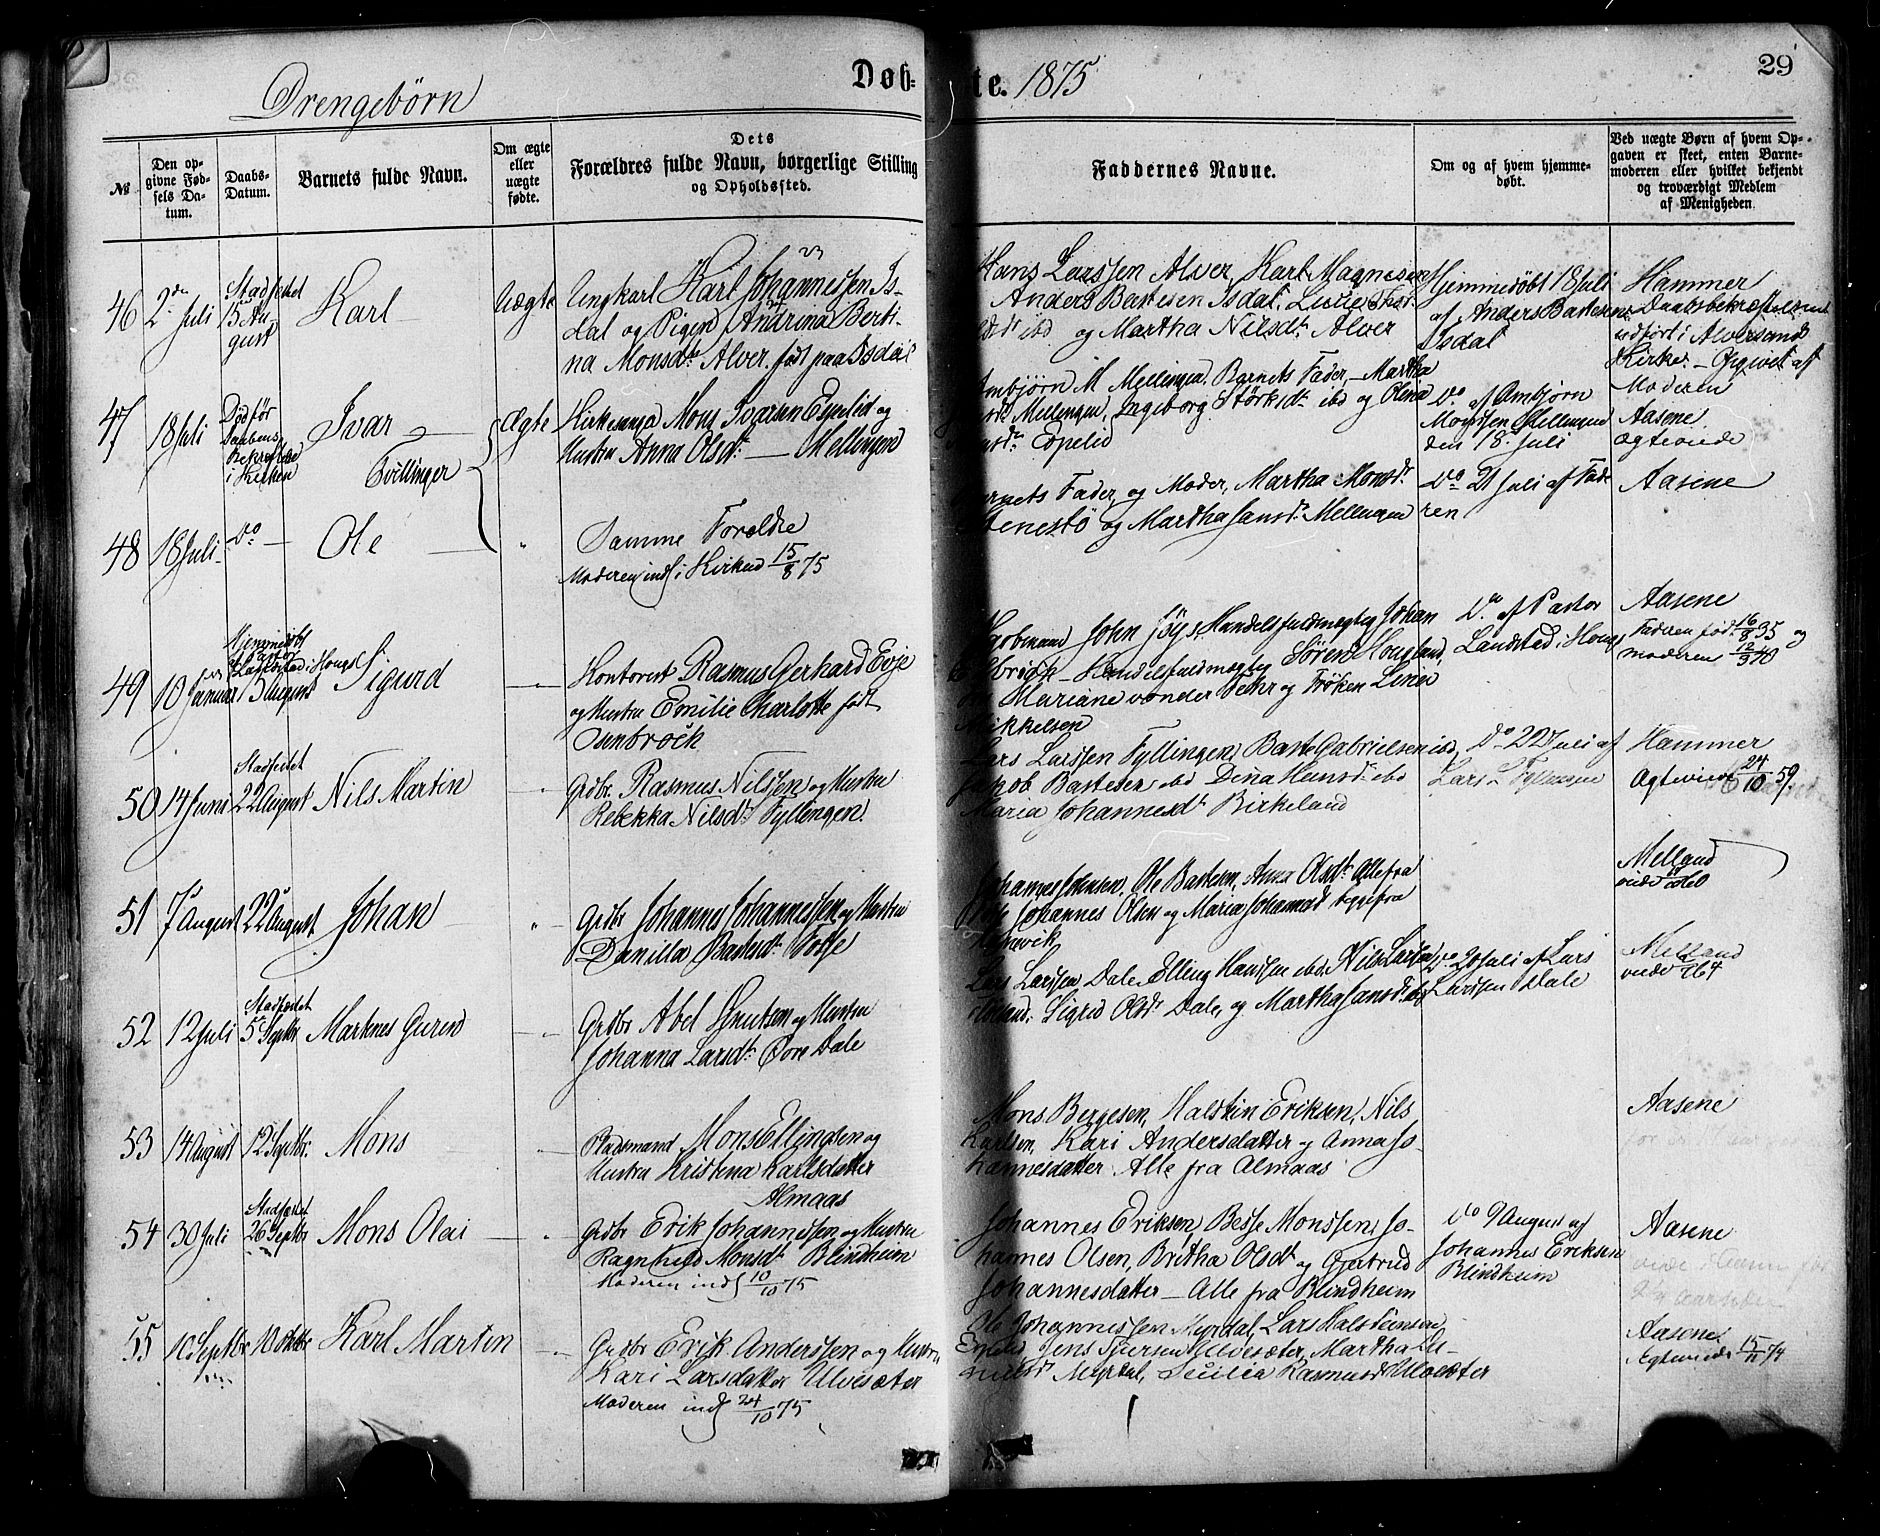 Drengebørn
Døb-
te. 1875
29
№
Den op-
givne Fød-
sels Da-
tum.
Daabs-
Datum.
Barnets fulde Navn.
Om ægte
eller
uægte
fødte.
Dets
Forældres fulde Navn, borgerlige Stilling
og Opholdssted.
Faddernes Navne.
Om og af hvem hjemme-
døbt.
Ved uægte Børn af hvem Op-
gaven er skeet, enten Barne-
moderen eller hvilket bekjendt
og troværdigt Medlem
af Menigheden.
46
2den Juli
Stadfestet
15 Au-
gust
Karl
Uægte
Ungkarl Karl Johannessen Is-
dal og Pigen Andrina Berti-
na Monsdtr Alver. født paa Isdal
Hans Larssen Alver, Karl Magnesen
Anders Bastesen Isdal,
ibd og Martha Nilsdt. Alver
Hjemmedøbt 18 Juli
af Anders Bastesen
Isdal
Hammer
Daabsbekræftelsen
udført i Alversund
Kirke. - Opgivet af
Moderen
47
18 Juli
Død før
Daabens
Bekræftelse
i Kirken
Ivar
Tvillinger
Ægte
Kirkesanger Mons Ivarsen Espelid og
Hustru Anna Olsdt. — Mellingen
Ambjørn M. Mellingen, Barnets Fader, Martha
Mellingen, Ingeborg Størksdt. ibd og Olena
Espelid
Do af Ambjørn
Monssen Mellingen
den 18. Juli
Aasene
Ægteviede
48
18 Juli
Do
Ole
"
Samme Forældre
Moderen indl i Kirken 15/8 75
Barnets Fader, og Moder, Martha Monsdr.
og Martha Jansdr. Mellingen
Do 21 Juli af Fade
ren
Aasene
49
10 Januar
Hjemmedøbt
af Pastor
Landstad i Houg
August
Sigurd
"
Kontorist Rasmus Gerhard Evje
og Hustru Emilie Charlotte født
Osenbroch
John Joys, Handelsfuldmægtig Johan
Handelsfuldmægtig Sören Hougland,
Mariane vonder Fehr og Frøken Lina
Mikkelsen
Do af Pastor
Landstad i Houg
Aasene
Faderen fød: 16/8 35 og
moderen 12/3 40
50
14 Juni
Stadfestet
22 August
Nils Martin
"
Grdbr. Rasmus Nilssen og Hustru
Rebekka Nilsdt. Fyllingen.
Lars Larssen Fyllingen, Baste Gabrielsen ibd,
Jakob Bastesen ibd Dina Hansdr. ibd
Maria Johannesdt Birkeland
Do 22 Juli af
Lars L. Fyllingen
Hammer
Ægteviede 24/10 59.
51
7 August
22 August
Johan
"
Grdbr Johannes Johannessen og Hustru
Danilla Bastesdt. Fosse
Johannes Johnsen, Ole Bastesen, Anna Olsdt. Alle fra
Johannes Olsen og Maria Johannesdt begge fra
Meland
52
12 Juli
Stadfæstet
5 Septbr
Marknes Gurin
"
Grdbr Abel Knutsen og Hustru
Johanna Larsdt. Øvre Dale
Lars Larssen Dale Elling Hanssen ibd, Nils Larsen
Sigrid Olsdr. Dale, og Martha Jansdr. ibd
Do 20 Juli af Lars
Larssen Dale
Melland
53
14 August
12 Septbr.
Mons
"
Pladsmand Mons Ellingsen og
Hustru Kristina Karlsdatter
Almaas
Mons Bergesen, Halstein Eriksen, Nils
Karlsen, Kari Andersdatter og Anna Jo-
hannesdatter Alle fra Almaas
Aasene
54
30 Juli
Stadfæstet
26 Septbr
Mons Olai
"
Grdbr Erik Johannessen og Hustru
Ragnhild Monsdt. Blindheim
Moderen indl 10/10 75
Johannes Eriksen, Besse Monssen, Jo-
hannes Olsen, Britha Olsdt og Gjertrud
Johannesdatter — Alle fra Blindheim
Do 9 August af
Johannes Eriksen
Blindheim
Aasene
55
10 Septbr
10 Oktbr
Karl Martin
"
Grdbr Erik Anderssen og Hustru
Kari Larsdatter Ulvesæter
Moderen indl 24/10 75
Ole Johannessen Myrdal, Lars Halsteinsen
Jens Iversen Ulvesæter, Martha
Myrdal, Cecilia Rasmusdt Ulvesæter
Aasene
Ægteviede 15/11 74